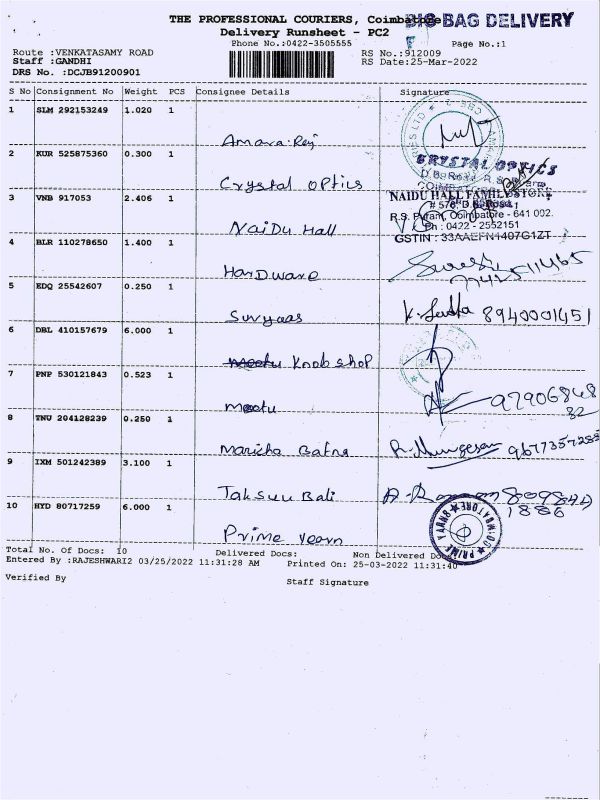 THE PROFESSIONAL COURIERS, Coimbatore BIG BAG DELIVERY
Delivery Runsheet - PC2
Phone No.:0422-3505555 Page No.:1
Route :VENKATASAMY ROAD RS No.:912009
Staff :GANDHI RS Date:25-Mar-2022
DRS No. :DCJB91200901
S No Consignment No Weight PCS Consignee Details Signature
1 SLM 292153249 1.020 1
Amara Raj
2 KUR 525875360 0.300 1
CRYSTAL OPTICS
Crystal optics
3 VNB 917053 2.406 1
NAIDU HALL FAMILY STORE
R.S. Puram, Coimbatore - 641 002.
Ph : 0422 - 2552151
NaiDu Hall
GSTIN : 33AAEFN1407G1ZT
4 BLR 110278650 1.400 1
HarDware
5 EDQ 25542607 0.250 1
Suryaas K. Sudha 8940001451
6 DBL 410157679 6.000 1
Knob shop
7 PNP 530121843 0.523 1
meetu 97906848
82
8 TNU 204128239 0.250 1
R. Murugesan 9677357285
9 IXM 501242389 3.100 1
10 HYD 80717259 6.000 1
1886
PRIME YARNS COIMBATORE
Prime yearn
Total No. Of Docs: 10 Delivered Docs: Non Delivered Docs
Entered By :RAJESHWARI2 03/25/2022 11:31:28 AM Printed On: 25-03-2022 11:31:40
Verified By
Staff Signature